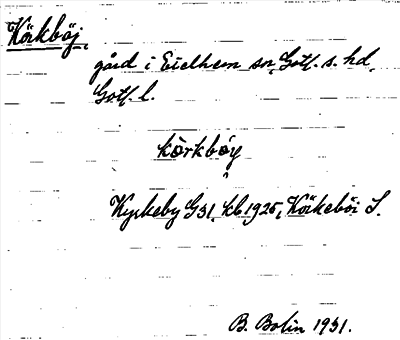 Körkböj,
gård i Eielhem sn, Gotl. s. hd,
Gotl. l.
körkböy
Kyrkeby G31, kb 1925, Körkeböi S.
B. Bolin 1931.